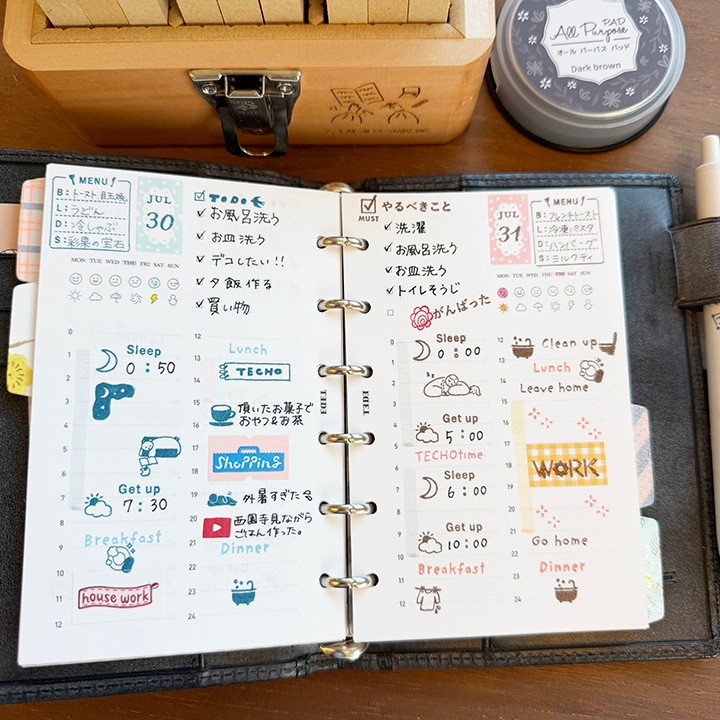 All Purpose PAD
オールパーパスパッド
Dark brown
MENU
B:トースト 目玉焼
L:うどん
D:冷しゃぶ
S:彩果の宝石
JUL
30
TODO
お風呂洗う
お皿洗う
デコしたい!!
夕飯作る
買い物
MON TUE WED THU FRI SAT SUN
0
1
2
3
4
5
6
7
8
9
10
11
12
Sleep
0:50
Get up
7:30
Breakfast
house work
12
13
14
15
16
17
18
19
20
21
22
23
24
Lunch
TECHO
頂いたお菓子で
おやつ&お茶
Shopping
外暑すぎた
西園寺見ながら
ごはん作った。
Dinner
MUST
やるべきこと
洗濯
お風呂洗う
お皿洗う
トイレそうじ
がんばった
JUL
31
MENU
B:フレンチトースト
L:冷凍パスタ
D:ハンバーグ
S:ミルクティ
MON TUE WED THU FRI SAT SUN
0
1
2
3
4
5
6
7
8
9
10
11
12
Sleep
0:00
Get up
5:00
TECHOtime
Sleep
6:00
Get up
10:00
Breakfast
12
13
14
15
16
17
18
19
20
21
22
23
24
Clean up
Lunch
Leave home
WORK
Go home
Dinner